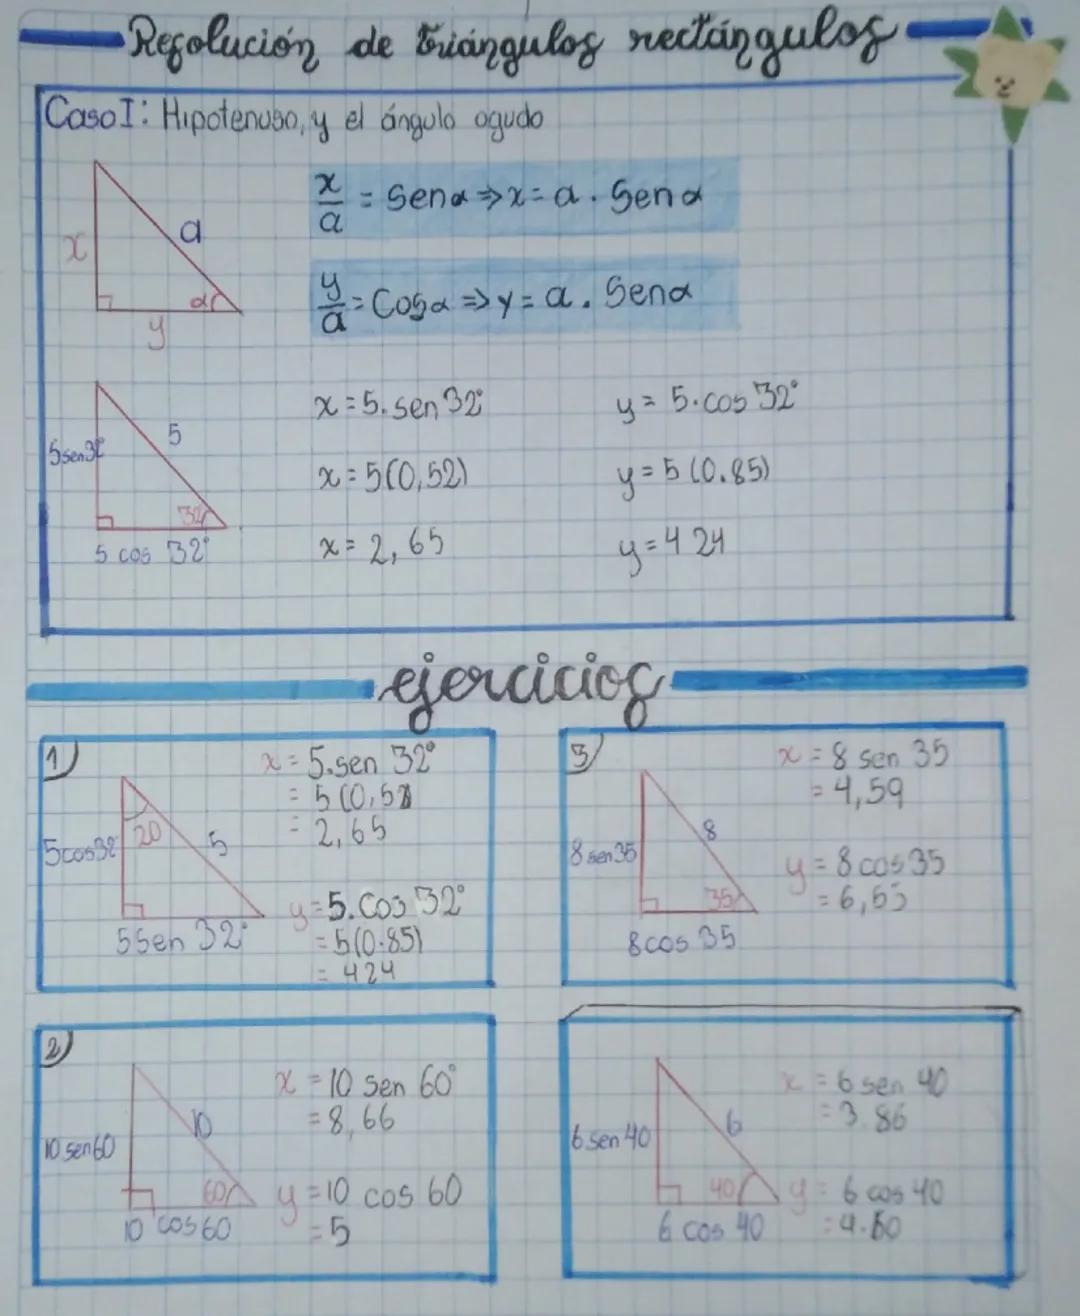 Resolución de triángulos rectángulos
Caso I: Hipotenusa, y el ángulo agudo
x/a = Sen α ⇒ x = a . Sen α
x
a
α
y
y/a = Cos α ⇒ y = a . Sen α
x = 5. sen 32°
y = 5. cos 32°
5 sen 32°
5
32
5 cos 32°
x = 5(0,52)
y = 5 (0.85)
x = 2, 65
y = 4 24
ejercicios
1)
5 cos 32
20
5
5 Sen 32°
x = 5. sen 32°
= 5 (0,52
= 2,65
y = 5. Cos 32°
= 5(0.85)
= 424
3)
8 sen 35
8
35
8 cos 35
x = 8 sen 35
= 4,59
y = 8 cos 35
= 6,55
2)
10 sen 60
10
60
10 cos 60
x = 10 sen 60°
= 8,66
y = 10 cos 60
= 5
6 sen 40
6
40
6 cos 40
x = 6 sen 40
= 3.86
y = 6 cos 40
= 4.60